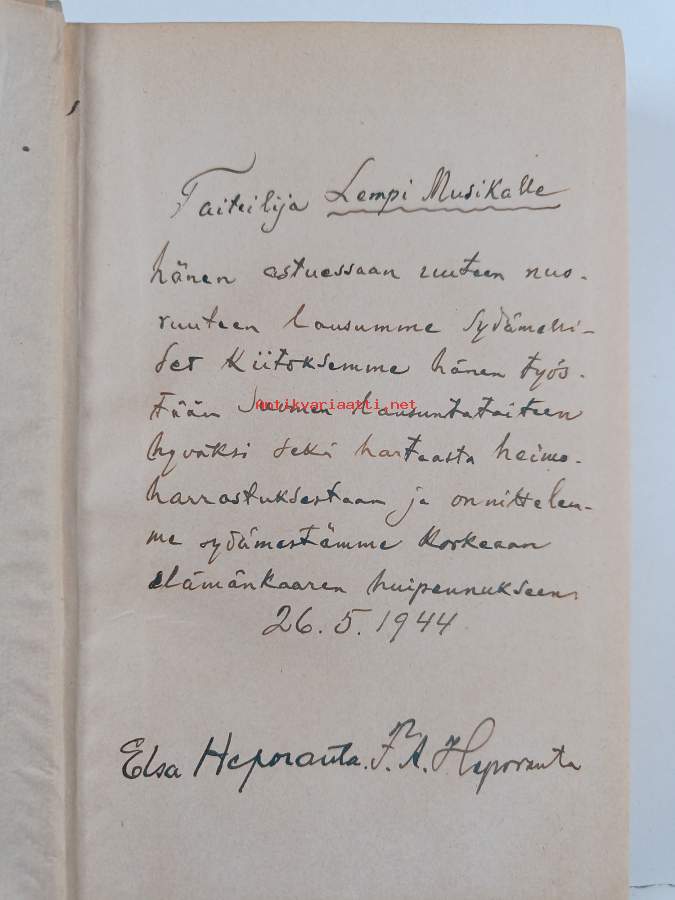 Taiteilija Lempi Musikalle
hänen astuessaan uuteen nuo-
ruuteen lausumme sydämelli-
set kiitoksemme hänen työs-
tään Suomen lausuntataiteen
Antikvariaatti.net
hyväksi sekä hartaasta heimo-
harrastuksestaan ja onnittelem-
me sydämestämme korkeaan
elämänkaaren huipennukseen.
26.5.1944
Elsa Heporauta. F. A. Heporauta